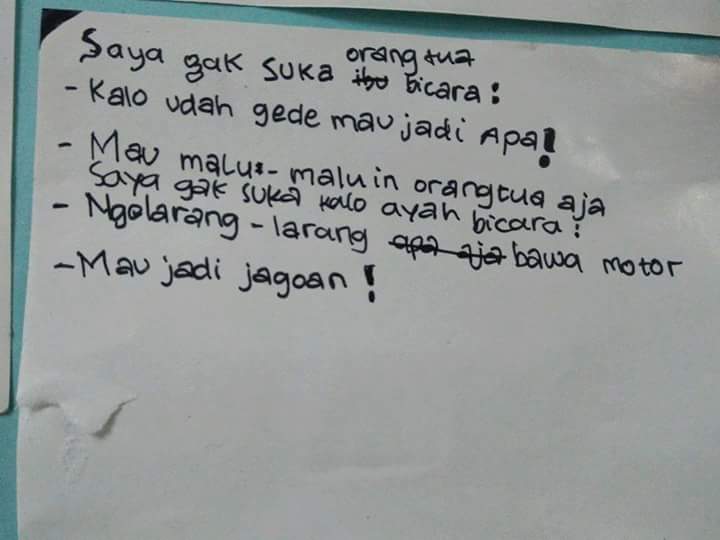 Saya gak suka ibu orangtua bicara :
- Kalo udah gede mau jadi Apa!
- Mau malu-malu in orangtua aja
Saya gak suka kalo ayah bicara :
- Ngelarang - larang apa aja bawa motor
- Mau jadi jagoan !